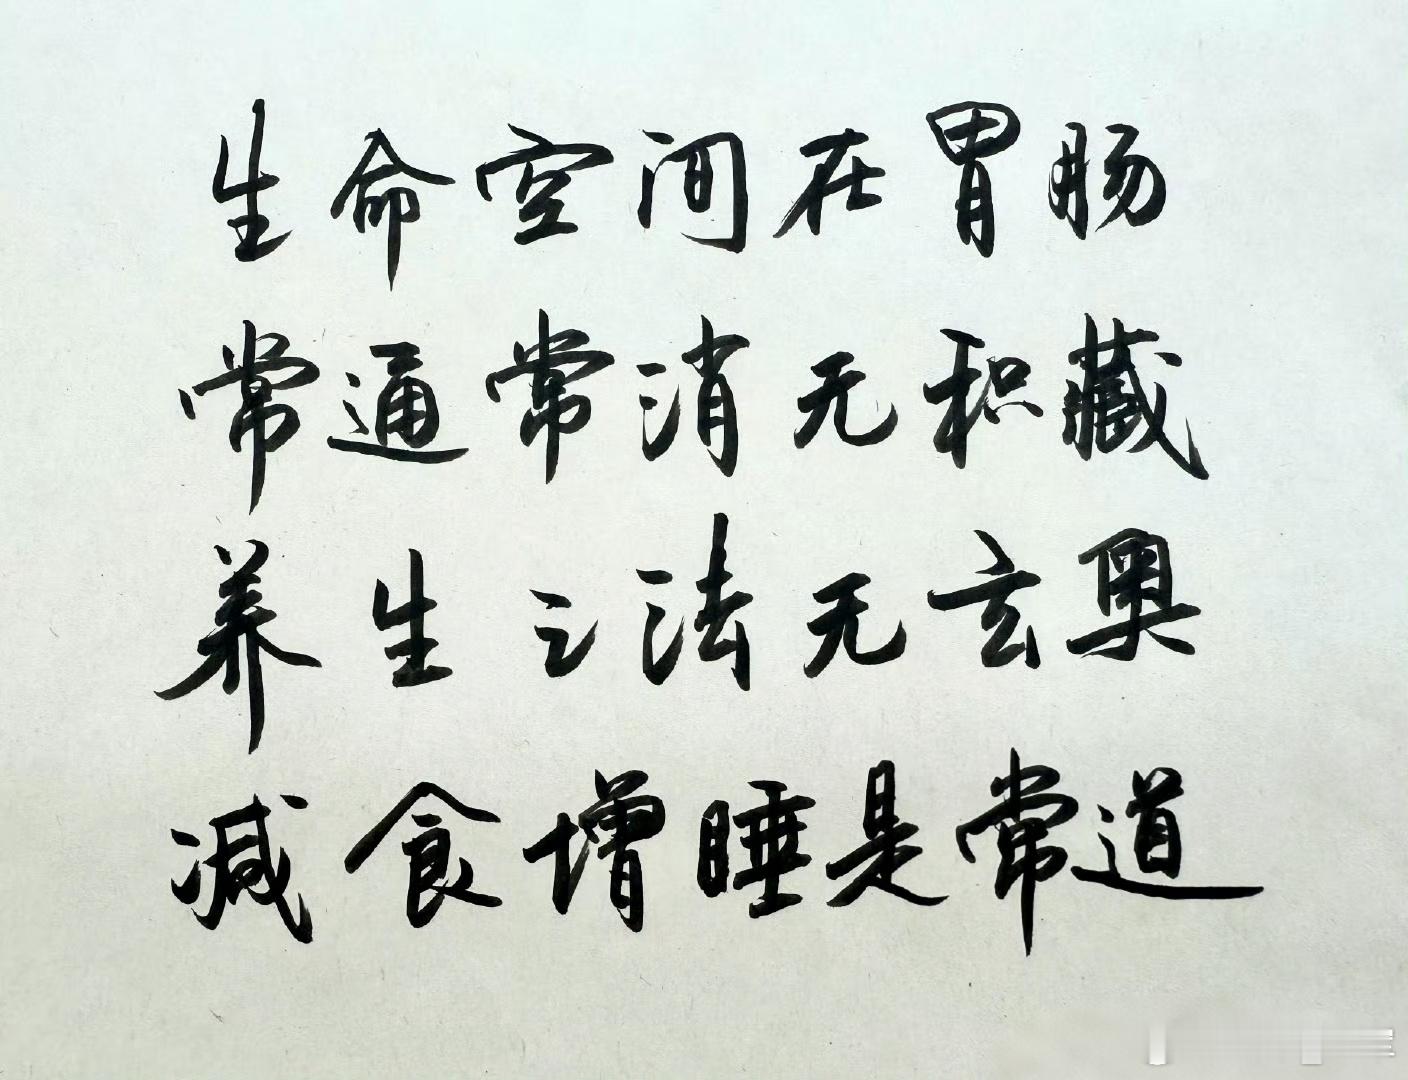 生命空间在胃肠
常通常消无积藏
养生之法无玄奥
减食增睡是常道